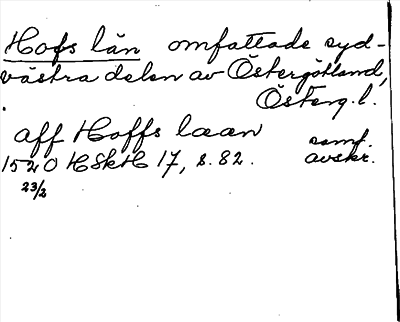 Hofs län omfattade syd-
västra delen av Östergötland,
Österg.l.
aff Hoffs læan samt.
1520 HSkH 17, s. 82. avskr.
23/2